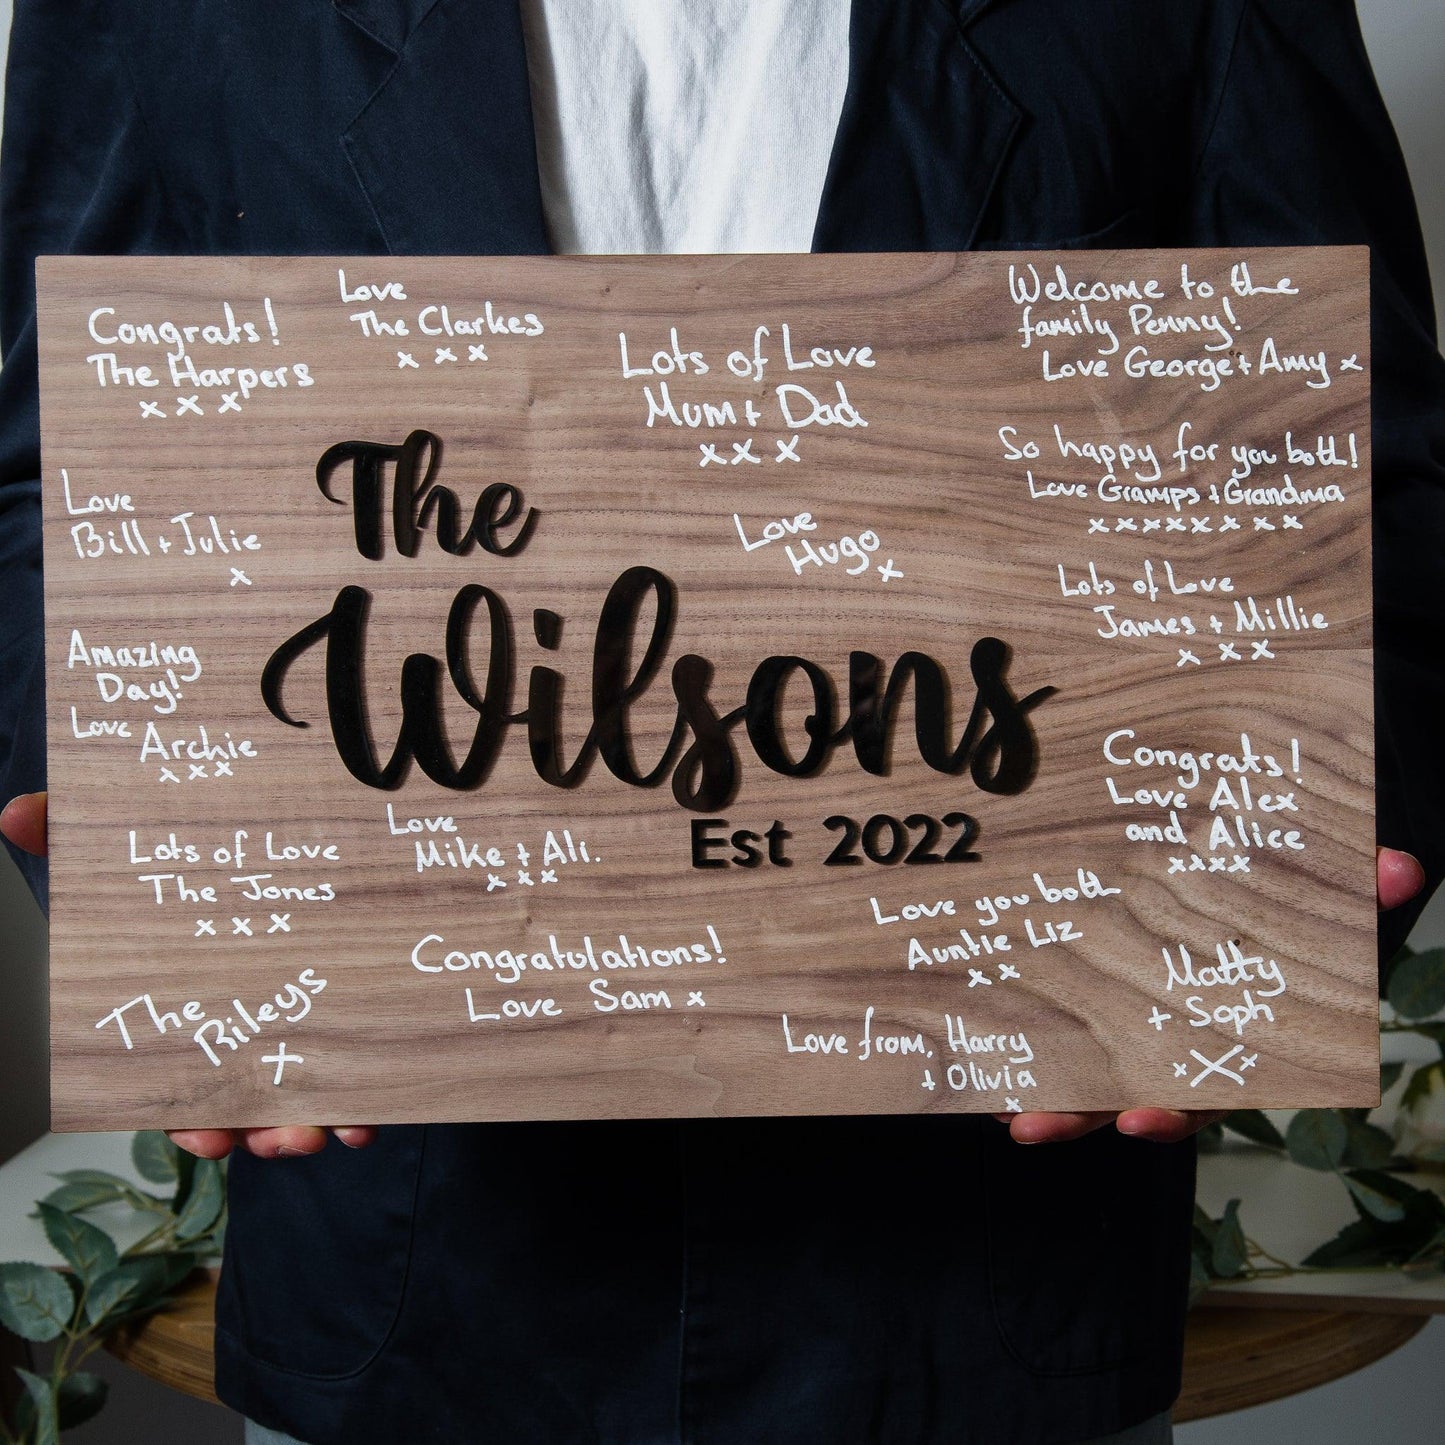 Congrats!
The Harpers
x x x
Love
The Clarkes
x x x
Lots of Love
Mum + Dad
x x x
Welcome to the
family Penny!
Love George + Amy x
So happy for you both!
Love Gramps + Grandma
x x x x x x x x x
Love
Bill + Julie
x
The
Wilsons
Est 2022
Love
Hugo
x
Lots of Love
James + Millie
x x x
Amazing
Day!
Love Archie
x x x
Congrats!
Love Alex
and Alice
x x x x
Lots of Love
The Jones
x x x
Love
Mike + Ali.
x x x
Love you both
Auntie Liz
x x
Congratulations!
Love Sam x
Matty
+ Soph
x X x
The
Rileys
x
Love from, Harry
+ Olivia
x